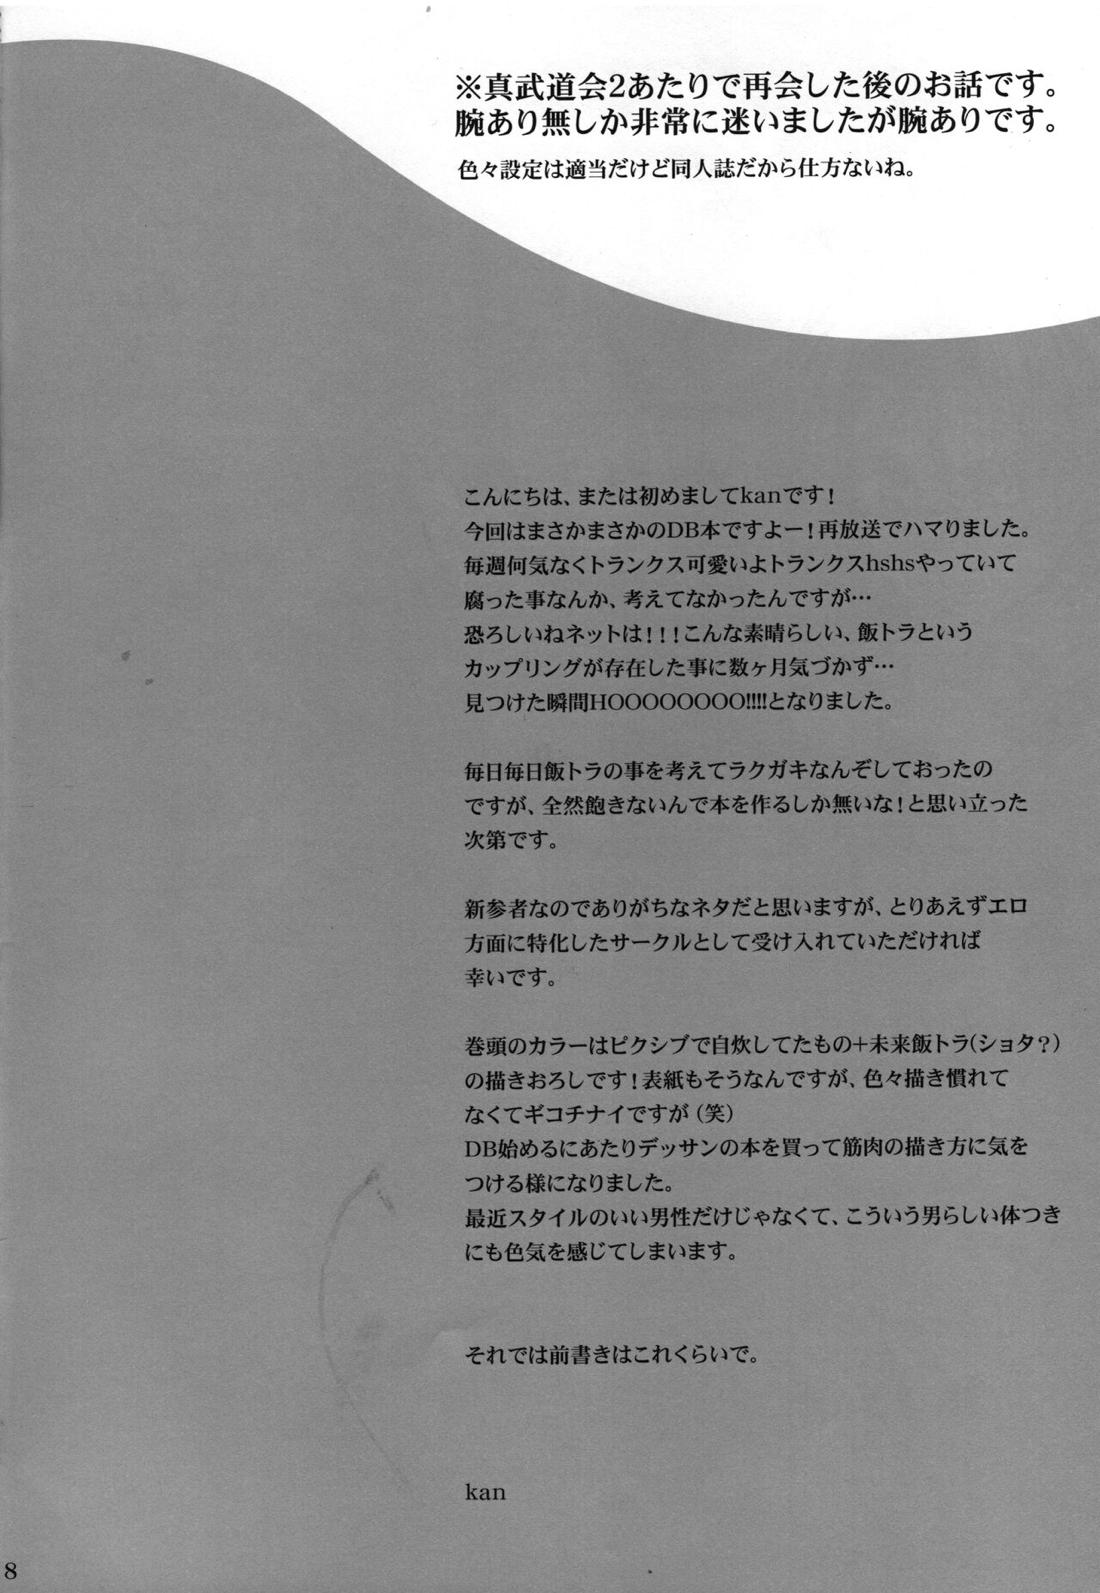 ※真武道会2あたりで再会した後のお話です。
腕あり無しか非常に迷いましたが腕ありです。
色々設定は適当だけど同人誌だから仕方ないね。
こんにちは、または初めましてkanです！
今回はまさかまさかのDB本ですよー！再放送でハマりました。
毎週何気なくトランクス可愛いよトランクスhshsやっていて
腐った事なんか、考えてなかったんですが…
恐ろしいねネットは！！！こんな素晴らしい、飯トラという
カップリングが存在した事に数ヶ月気づかず…
見つけた瞬間HOOOOOOOO!!!!となりました。
毎日毎日飯トラの事を考えてラクガキなんぞしておったの
ですが、全然飽きないんで本を作るしか無いな！と思い立った
次第です。
新参者なのでありがちなネタだと思いますが、とりあえずエロ
方面に特化したサークルとして受け入れていただければ
幸いです。
巻頭のカラーはピクシブで自炊してたもの+未来飯トラ(ショタ？)
の描きおろしです！表紙もそうなんですが、色々描き慣れて
なくてギコチナイですが（笑）
DB始めるにあたりデッサンの本を買って筋肉の描き方に気を
つける様になりました。
最近スタイルのいい男性だけじゃなくて、こういう男らしい体つき
にも色気を感じてしまいます。
それでは前書きはこれくらいで。
kan
8